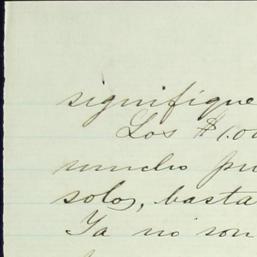 signifique
Los $1.00
mucho pu
solos, basta
Ya no son